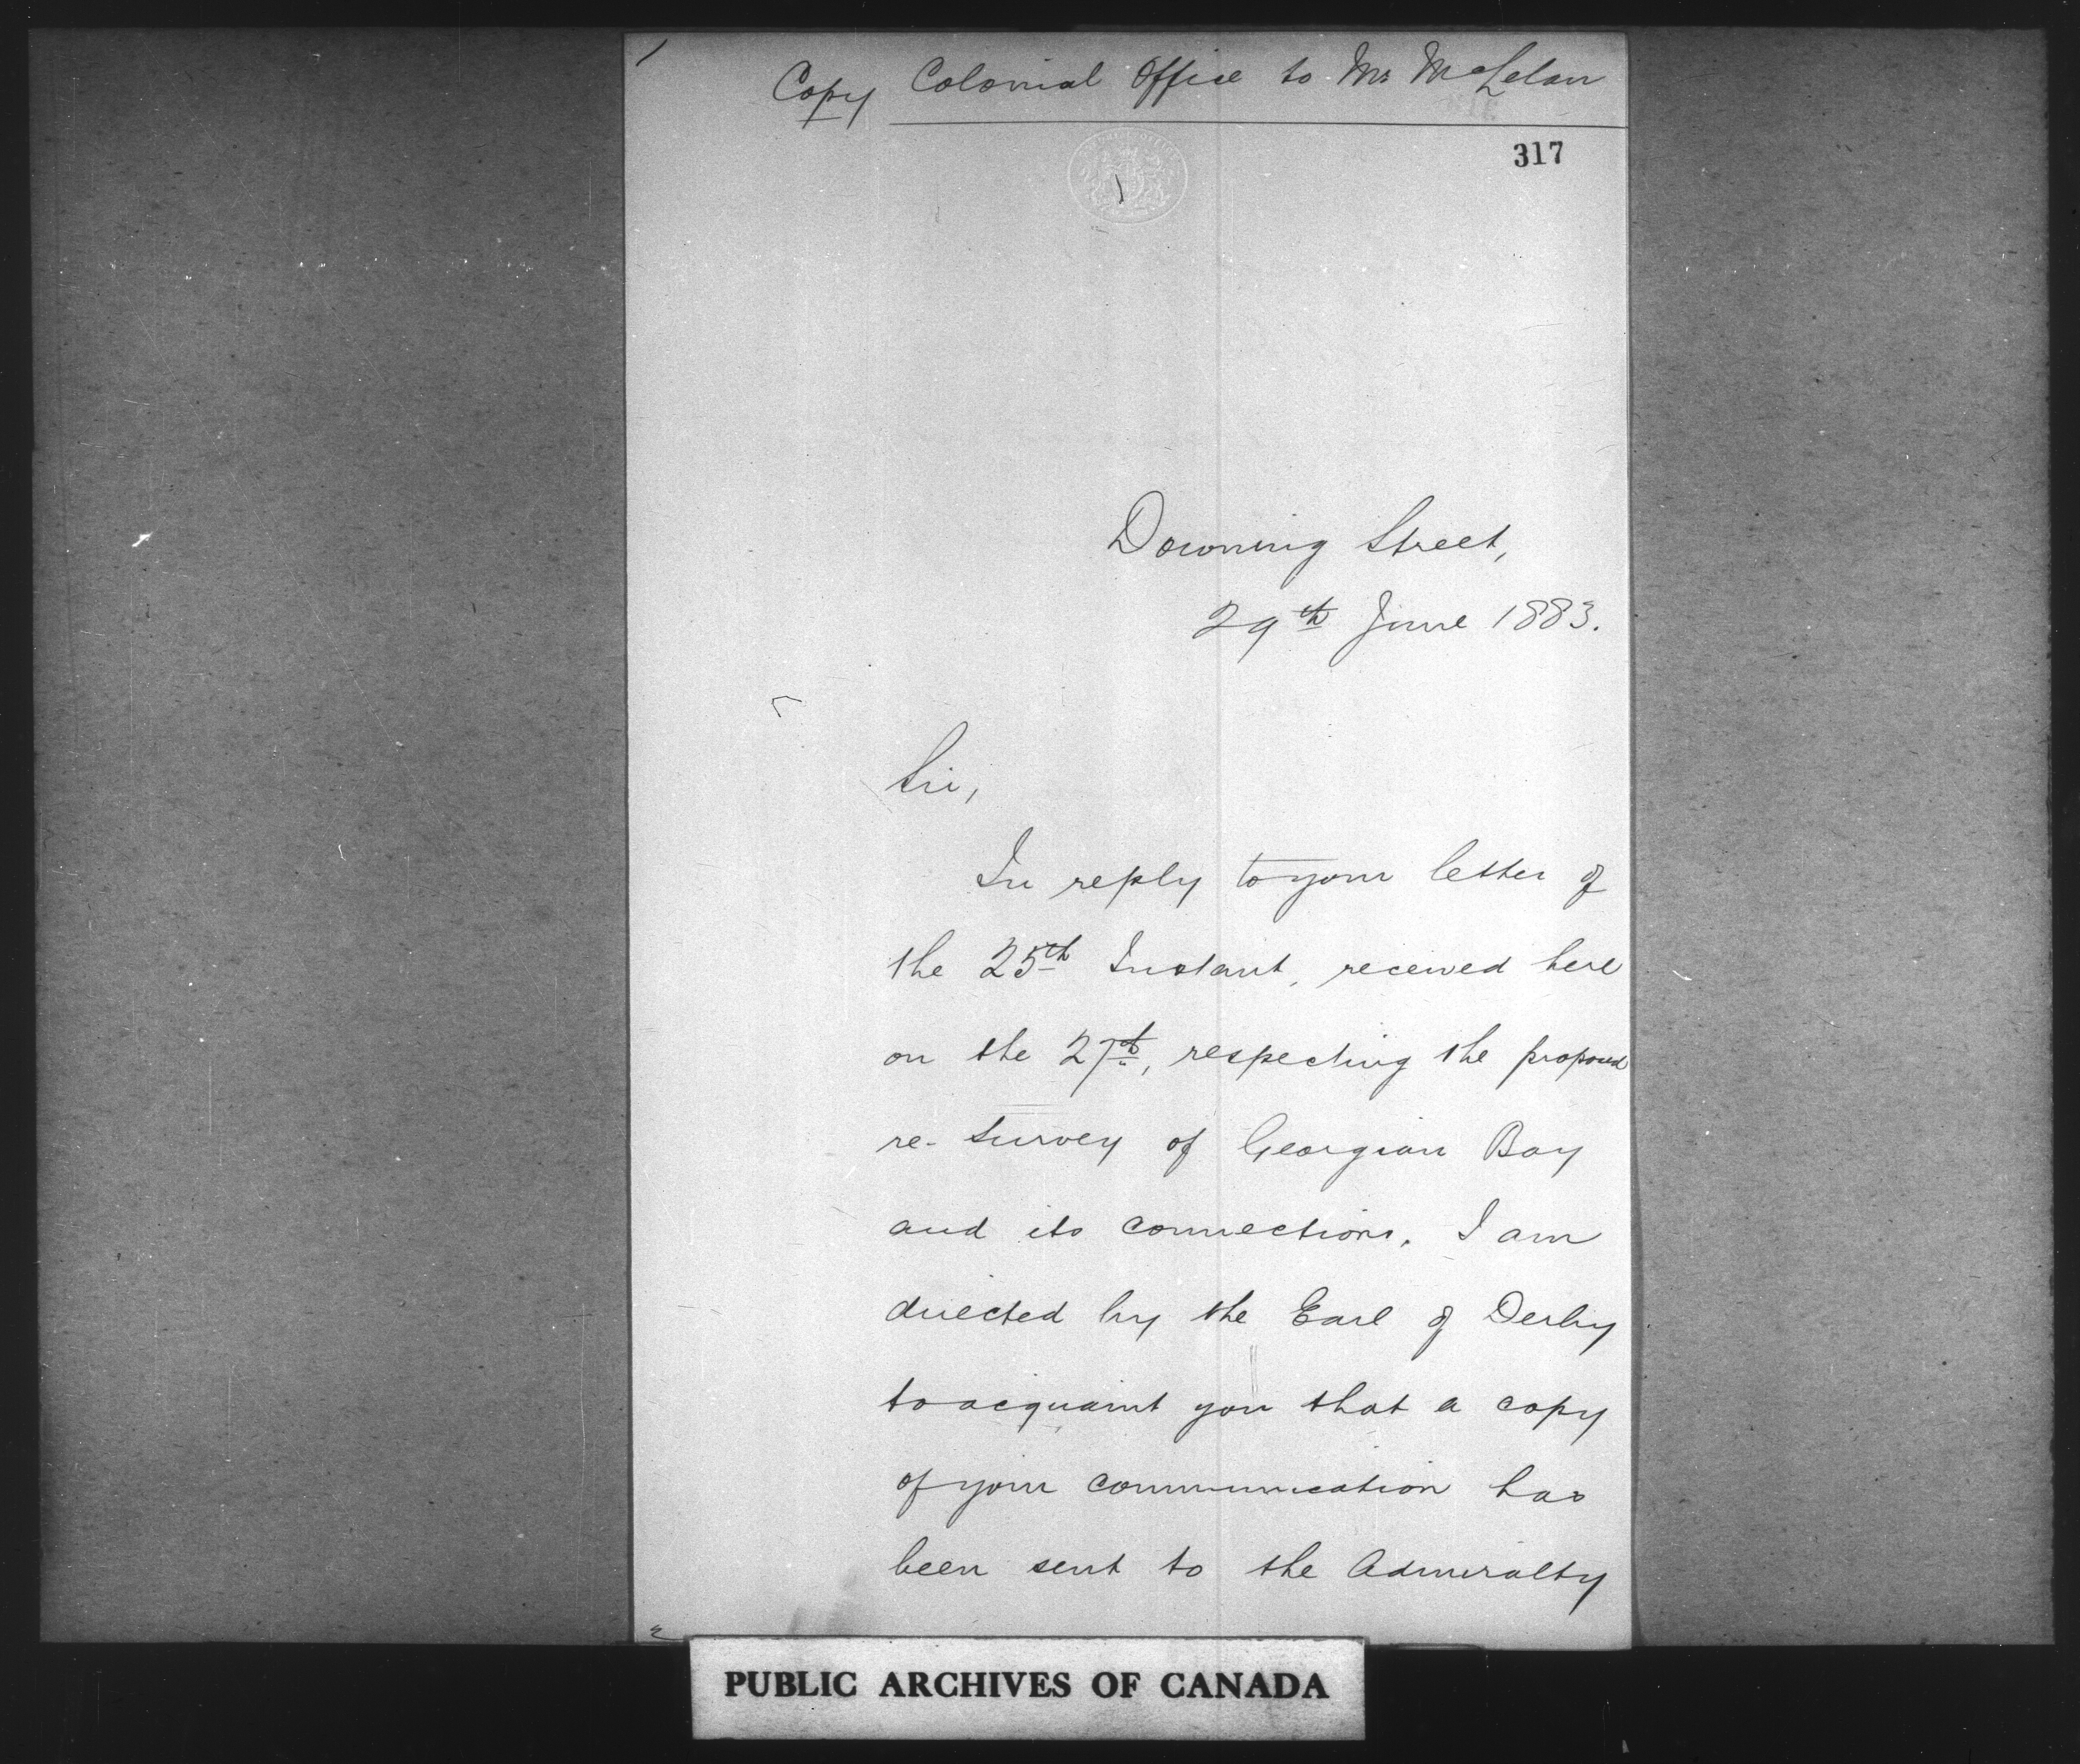 Copy Colonial Office to Mr McLelan
317
Downing Street,
29th June 1883.
Sir,
In reply to your letter of
the 25th Instant, received here
on the 27th, respecting the proposed
re-survey of Georgian Bay
and its connections, I am
directed by the Earl of Derby
to acquaint you that a copy
of your communication has
been sent to the Admiralty
PUBLIC ARCHIVES OF CANADA